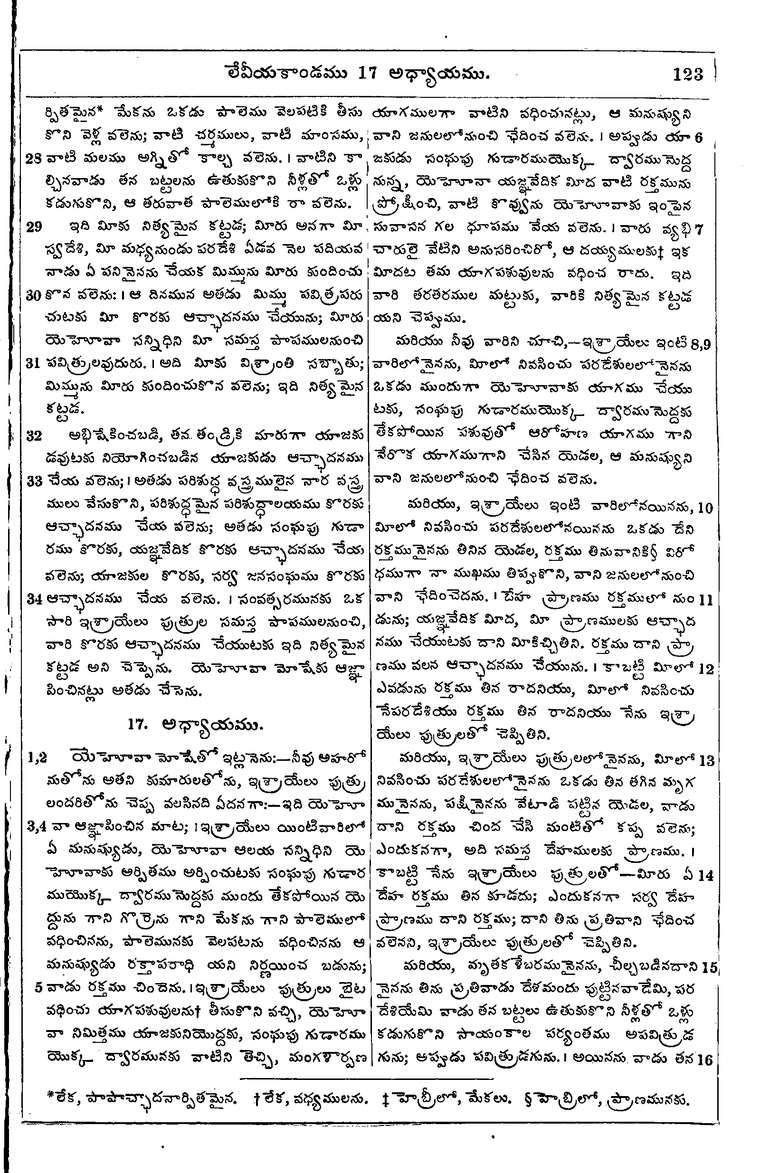 లేవీయకాండము 17 అధ్యాయము. 123
ర్పితమైన* మేకను ఒకడు పాలెము వెలపటికి తీసు
కొని వెళ్ల వలెను; వాటి చర్మములు, వాటి మాంసము,
28 వాటి మలము అగ్నితో కాల్చ వలెను. । వాటిని కా
ల్చినవాడు తన బట్టలను ఉతుకుకొని నీళ్లతో ఒళ్లు
కడుగుకొని, ఆ తరువాత పాలెములోకి రా వలెను.
29 ఇది మీకు నిత్యమైన కట్టడ; మీరు అనగా మీ
స్వదేశి, మీ మధ్యనుండు పరదేశి ఏడవ నెల పదియవ
నాడు ఏ పనినైనను చేయక మిమ్మును మీరు కుందించు
30 కొన వలెను: । ఆ దినమున అతడు మిమ్ము పవిత్రపరు
చుటకు మీ కొరకు ఆచ్ఛాదనము చేయును; మీరు
యెహోవా సన్నిధిని మీ సమస్త పాపములనుంచి
31 పవిత్రులవుదురు. । అది మీకు విశ్రాంతి సబ్బాతు;
మిమ్మును మీరు కుందించుకొన వలెను; ఇది నిత్యమైన
కట్టడ.
32 అభిషేకించబడి, తన తండ్రికి మారుగా యాజకు
డవుటకు నియోగించబడిన యాజకుడు ఆచ్ఛాదనము
33 చేయ వలెను; । అతడు పరిశుద్ధ వస్త్రములైన నార వస్త్ర
ములు వేసుకొని, పరిశుద్ధమైన పరిశుద్ధాలయము కొరకు
ఆచ్ఛాదనము చేయ వలెను; అతడు సంఘపు గుడా
రము కొరకు, యజ్ఞవేదిక కొరకు ఆచ్ఛాదనము చేయ
వలెను; యాజకుల కొరకు, సర్వ జనసంఘము కొరకు
34 ఆచ్ఛాదనము చేయ వలెను. । సంవత్సరమునకు ఒక
సారి ఇశ్రాయేలు పుత్రుల సమస్త పాపములనుంచి,
వారి కొరకు ఆచ్ఛాదనము చేయుటకు ఇది నిత్యమైన
కట్టడ అని చెప్పెను. యెహోవా మోషేకు ఆజ్ఞా
పించినట్లు అతడు చేసెను.
17. అధ్యాయము.
1,2 యెహోవా మోషేతో ఇట్లనెను:—నీవు అహరో
నుతోను అతని కుమారులతోను, ఇశ్రాయేలు పుత్రు
లందరితోను చెప్ప వలసినది ఏదనగా:—ఇది యెహో
3,4 వా ఆజ్ఞాపించిన మాట; । ఇశ్రాయేలు యింటివారిలో
ఏ మనుష్యుడు, యెహోవా ఆలయ సన్నిధిని యె
హోవాకు అర్పితము అర్పించుటకు సంఘపు గుడార
ముయొక్క ద్వారముమెద్దకు ముందు తేకపోయిన యె
ద్దును గాని గొర్రెను గాని మేకను గాని పాలెములో
వధించినను, పాలెమునకు వెలపటను వధించినను ఆ
మనుష్యుడు రక్తాపరాధి యని నిర్ణయించ బడును;
5 వాడు రక్తము చిందెను. । ఇశ్రాయేలు పుత్రులు బైట
వధించు యాగపశువులను† తీసుకొని వచ్చి, యెహో
వా నిమిత్తము యాజకునియొద్దకు, సంఘపు గుడారము
యొక్క ద్వారమునకు వాటిని తెచ్చి, మంగళార్పణ
యాగములగా వాటిని వధించునట్లు, ఆ మనుష్యుని
వాని జనులలోనుంచి ఛేదించ వలెను. । అప్పుడు యా 6
జకుడు సంఘపు గుడారముయొక్క ద్వారముమెద్ద
నున్న, యెహోవా యజ్ఞవేదిక మీద వాటి రక్తమును
ప్రోక్షించి, వాటి కొవ్వును యెహోవాకు ఇంపైన
సువాసన గల ధూపము వేయ వలెను. । వారు వ్యభి 7
చారులై వేటిని అనుసరించిరో, ఆ దయ్యములకు‡ ఇక
మీదట తమ యాగపశువులను వధించ రాదు. ఇది
వారి తరతరముల మట్టుకు, వారికి నిత్యమైన కట్టడ
యని చెప్పుము.
మరియు నీవు వారిని చూచి,—ఇశ్రాయేలు ఇంటి 8,9
వారిలోనైనను, మీలో నివసించు పరదేశులలోనైనను
ఒకడు ముందుగా యెహోవాకు యాగము చేయు
టకు, సంఘపు గుడారముయొక్క ద్వారముమెద్దకు
తేకపోయిన పశువుతో ఆరోహణ యాగము గాని
వేరొక యాగముగాని చేసిన యెడల, ఆ మనుష్యుని
వాని జనులలోనుంచి ఛేదించ వలెను.
మరియు, ఇశ్రాయేలు ఇంటి వారిలోనయినను, 10
మీలో నివసించు పరదేశులలోనయినను ఒకడు దేని
రక్తమునైనను తినిన యెడల, రక్తము తినువానికి§ విరో
ధముగా నా ముఖము తిప్పుకొని, వాని జనులలోనుంచి
వాని ఛేదించెదను. । దేహ ప్రాణము రక్తములో నుం 11
డును; యజ్ఞవేదిక మీద, మీ ప్రాణములకు ఆచ్ఛాద
నము చేయుటకు దాని మీకిచ్చితిని. రక్తము దాని ప్రా
ణము వలన ఆచ్ఛాదనము చేయును. । కాబట్టి మీలో 12
ఎవడును రక్తము తిన రాదనియు, మీలో నివసించు
నేపరదేశియు రక్తము తిన రాదనియు నేను ఇశ్రా
యేలు పుత్రులతో చెప్పితిని.
మరియు, ఇశ్రాయేలు పుత్రులలోనైనను, మీలో 13
నివసించు పరదేశులలోనైనను ఒకడు తిన తగిన మృగ
మునైనను, పక్షినైనను వేటాడి పట్టిన యెడల, వాడు
దాని రక్తము చింద చేసి మంటితో కప్ప వలెను;
ఎందుకనగా, అది సమస్త దేహములకు ప్రాణము. ।
కాబట్టి నేను ఇశ్రాయేలు పుత్రులతో—మీరు ఏ 14
దేహ రక్తము తిన కూడదు; ఎందుకనగా సర్వ దేహ
ప్రాణము దాని రక్తము; దాని తిను ప్రతివాని ఛేదించ
వలెనని, ఇశ్రాయేలు పుత్రులతో చెప్పితిని.
మరియు, మృతక శేబరమునైనను, చీల్చబడినదాని 15
నైనను తిను ప్రతివాడు దేశమందు పుట్టినవాడేమి, పర
దేశియేమి వాడు తన బట్టలు ఉతుకుకొని నీళ్లతో ఒళ్లు
కడుగుకొని సాయంకాల పర్యంతము అపవిత్రుడ
గును; అప్పుడు పవిత్రుడగును. । అయినను వాడు తన 16
*లేక, పాపాచ్ఛాదనార్పితమైన. †లేక, వధ్యములను. ‡హెబ్రీలో, మేకలు. §హెబ్రిలో, ప్రాణమునకు.